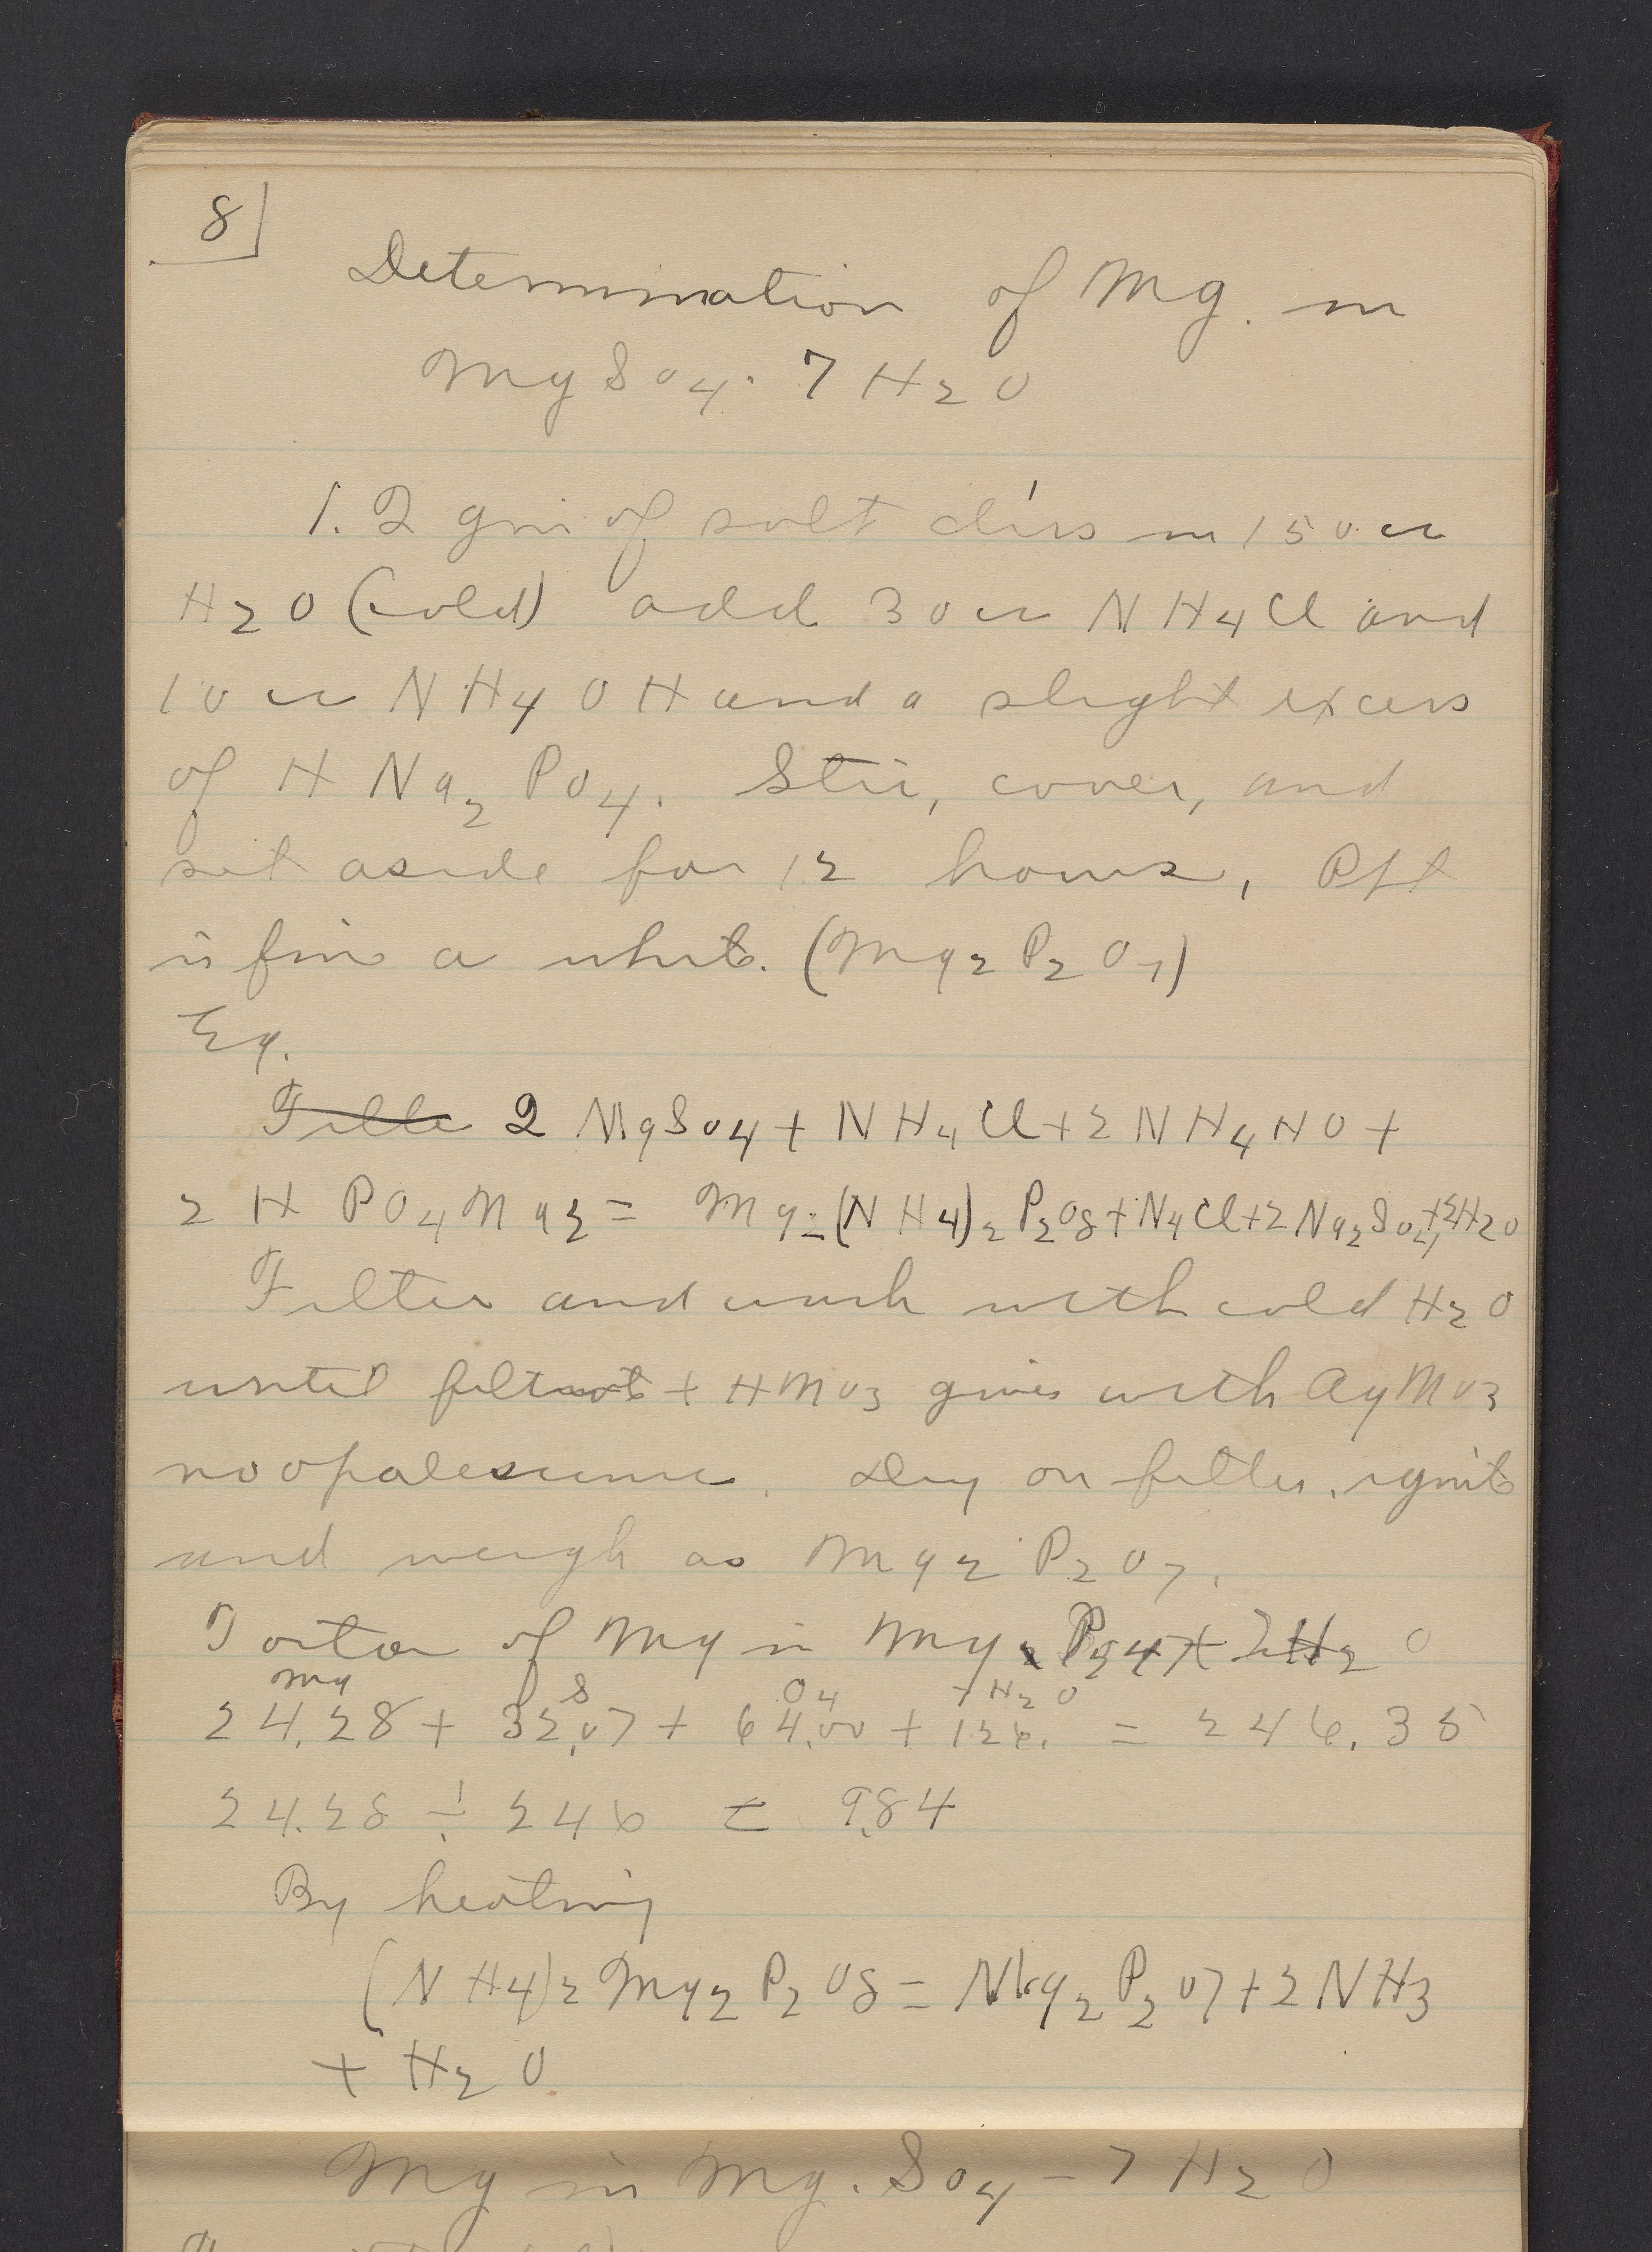 8
Determination of Mg. in
MgSO4. 7H2O
1.2 gm of salt diss in 150 cc
H2O (cold) add 30 cc NH4Cl and
10 cc NH4OH and a slight excess
of HNa2PO4. Stir, cover, and
set aside for 12 hours, Ppt
is fine a white. (Mg2P2O7)
Eq.
Filte 2 MgSO4 + NH4Cl + 2NH4HO +
2 H PO4Na2 = Mg2(NH4)2P2O8 + N4Cl + 2Na2SO4 + 2H2O
Filter and wash with cold H2O
until filtrate + HNO3 gives with AgNO3
no opalescence. Dry on filter, ignite
and weigh as Mg2P2O7.
Factor of Mg in Mg
Mg S O4 7H2O
24.28 + 32.07 + 64.00 + 126. = 246.35
24.28 ÷ 246 = 9.84
By heating
(NH4)2Mg2P2O8 = Mg2P2O7 + 2NH3
+ H2O
Mg in Mg. SO4 - 7H2O